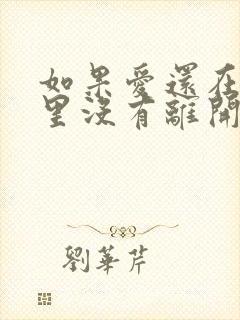 如果愛還在
里沒有離開
劉華芹